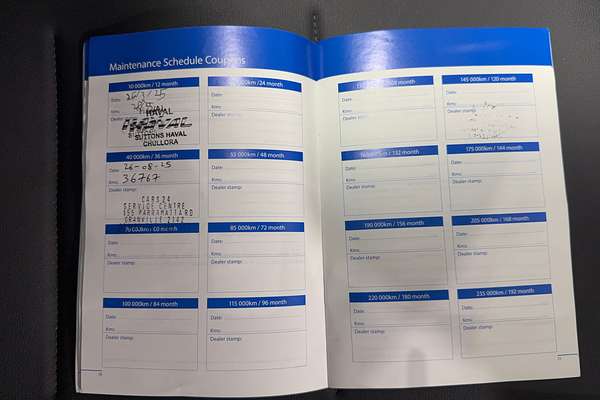 Maintenance Schedule Coupons
10 000km / 12 month
Date:
Kms:
Dealer stamp:
HAVAL
HAVAL
SUTTONS HAVAL
CHULLORA
000km /24 month
Date:
Kms:
Dealer stamp:
40 000km / 36 month
Date: 26-08-25
Kms: 36767
Dealer stamp:
CARS24
SERVICE CENTRE
155 PARRAMATTA RD
GRANVILLE 2142
55 000km / 48 month
Date:
Kms:
Dealer stamp:
70 000km / 60 month
Date:
Kms:
Dealer stamp:
85 000km / 72 month
Date:
Kms:
Dealer stamp:
100 000km / 84 month
Date:
Kms:
Dealer stamp:
115 000km / 96 month
Date:
Kms:
Dealer stamp:
Date:
Kms:
Dealer stamp:
145 000km / 120 month
Date:
Kms:
/ 132 month
Date:
Kms:
Dealer stamp:
175 000km / 144 month
Date:
Kms:
Dealer stamp:
190 000km / 156 month
Date:
Kms:
Dealer stamp:
205 000km / 168 month
Date:
Kms:
Dealer stamp:
220 000km / 180 month
Date:
Kms:
Dealer stamp:
235 000km / 192 month
Date:
Kms:
Dealer stamp: